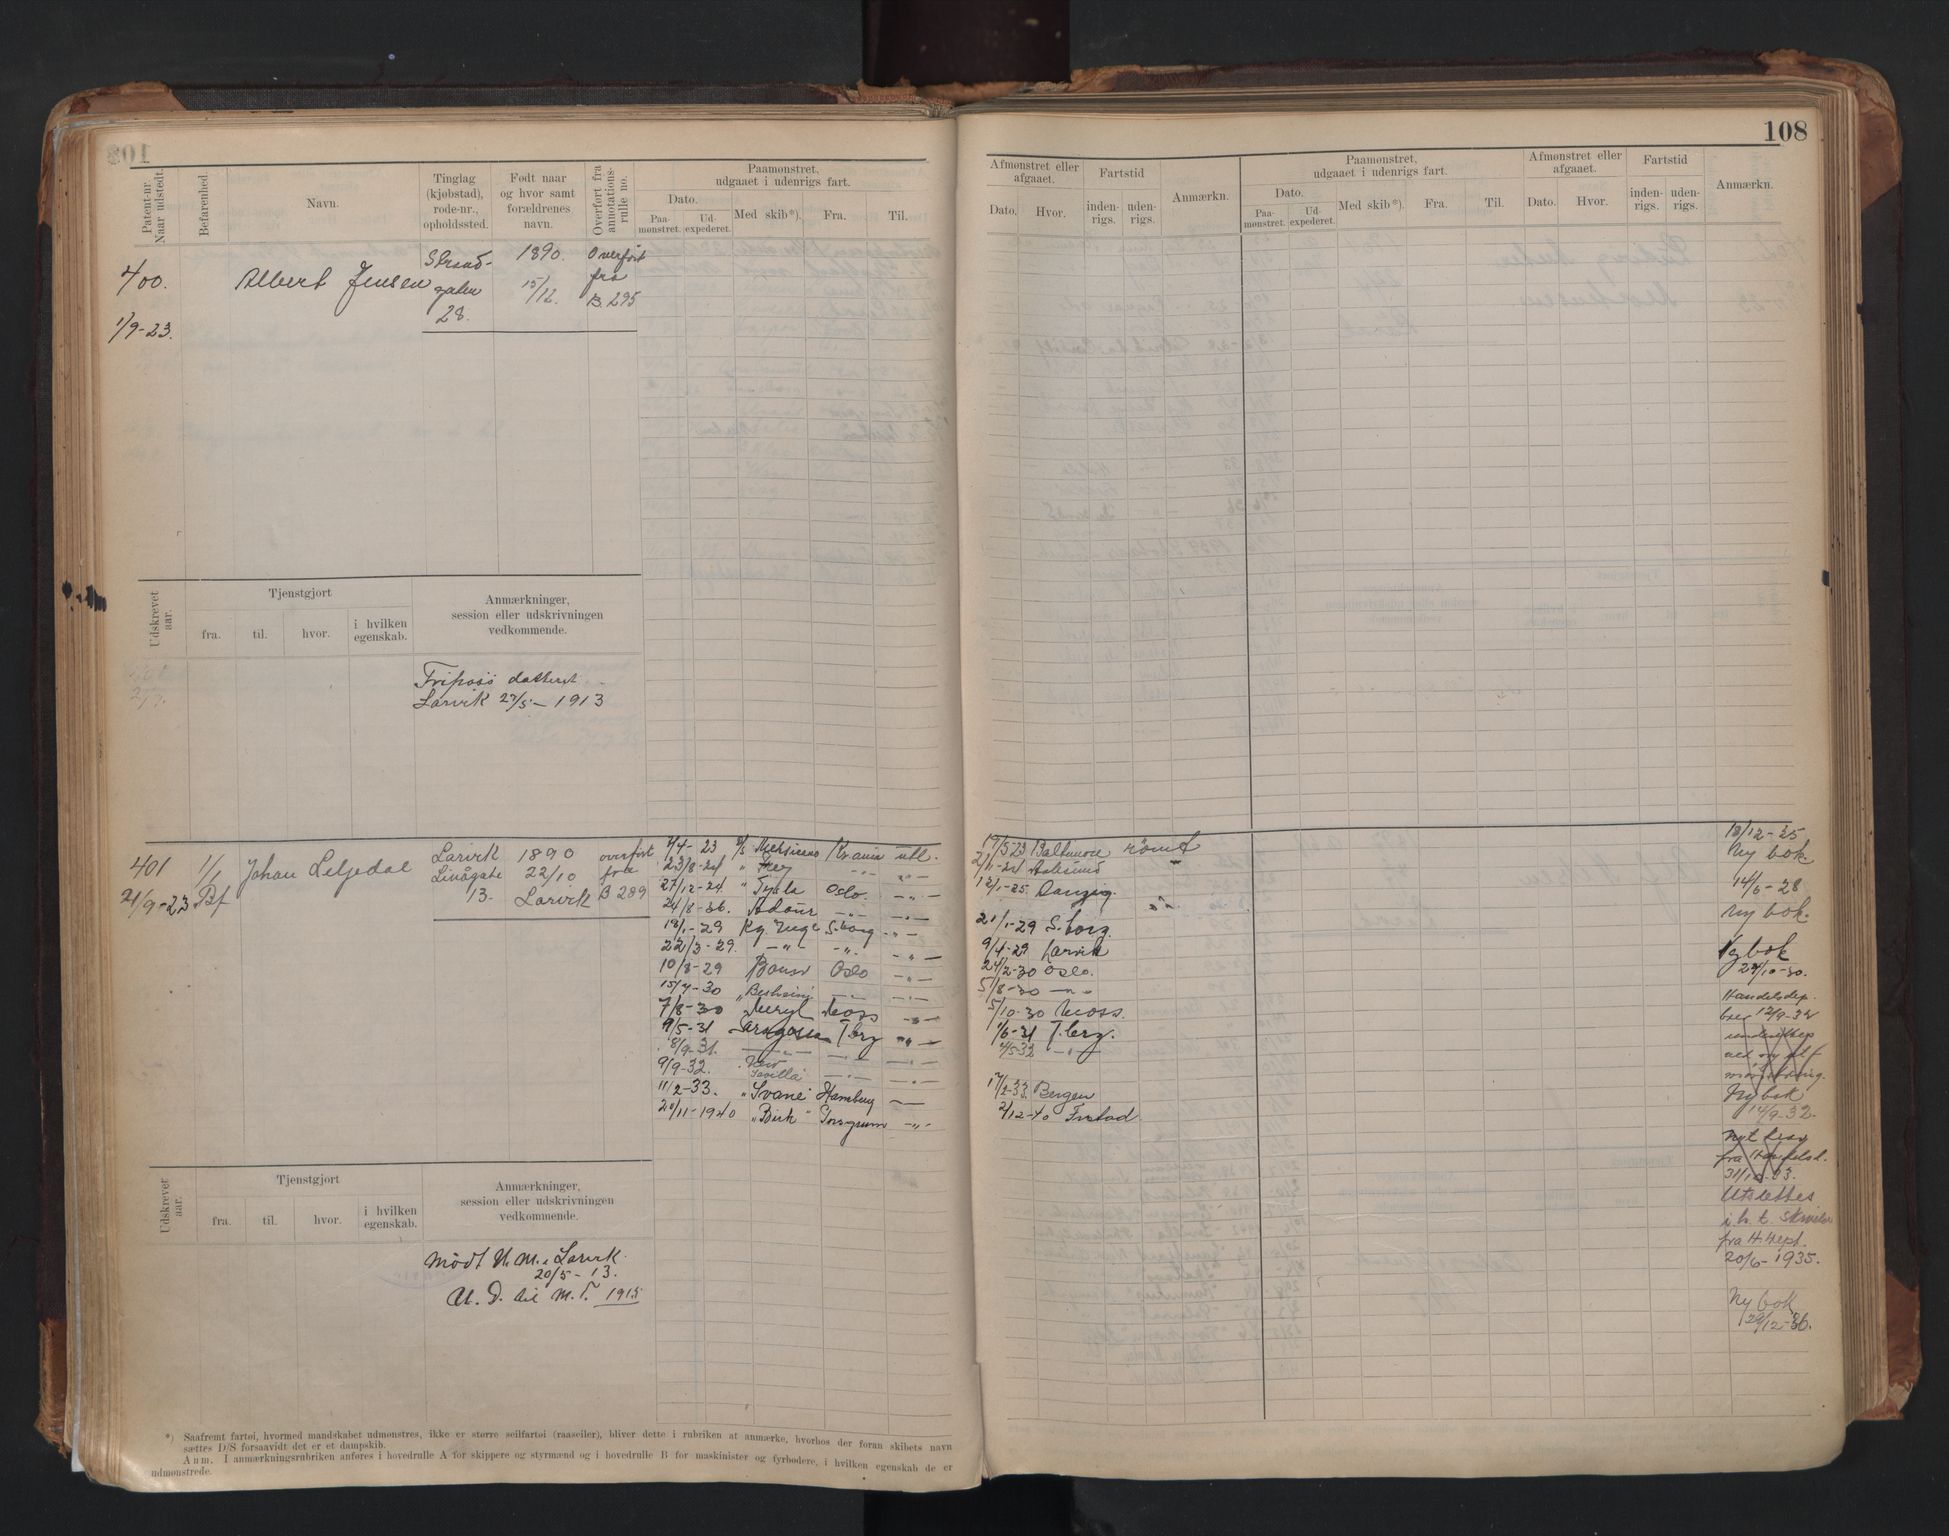 108
Patent-nr. Naar udstedt.
Befarenhed.
Navn.
Tinglag (kjøbstad), rode-nr., opholdssted.
Født naar og hvor samt forældrenes navn.
Overført fra annotations-rulle no.
Paamønstret, udgaaet i udenrigs fart.
Dato.
Paa-mønstret.
Ud-expederet.
Med skib*).
Fra.
Til.
Afmønstret eller afgaaet.
Dato.
Hvor.
Fartstid
inden-rigs.
uden-rigs.
Anmærkn.
Paamønstret, udgaaet i udenrigs fart.
Dato.
Paa-mønstret.
Ud-expederet.
Med skib*).
Fra.
Til.
Afmønstret eller afgaaet.
Dato.
Hvor.
Fartstid
inden-rigs.
uden-rigs.
Anmærkn.
400.
1/9-23.
Albert Jensen
Strand-
gaten
28.
1890.
15/12.
Overført
fra
B. 295
Udskrevet aar.
Tjenstgjort
fra.
til.
hvor.
i hvilken egenskab.
Anmærkninger,
session eller udskrivningen
vedkommende.
Fripass datteret
Larvik 27/5 - 1913
401
21/9-23
1/1
Bf
Johan Leljedal
Larvik
Linågate
13.
1890
22/10
Larvik
overført
fra
B 289
4-23 Kr.ania utl.
19/5-23 Baltimore rømt
23/8-24 " Frey
2/11-24
27/12-24. " Tyrla Oslo. -"-
12/1-25. Danzig
24/8-36. -"- -"-
19/1-29 Kg. Inge S.borg -"-
21/1-29 S.borg.
22/3-29. -"- -"- -"-
9/4-29 Larvik
10/8-29 Oslo -"-
24/2-30 Oslo.
15/4-30 -"-
5/8-30 -"-
7/8-30 Meryl Moss -"-
5/10-30 Moss.
9/5-31 Saragossa T.berg -"-
1/6-31 T.berg.
8/9-31. -"- -"- -"-
4/5 32 -"-
9/9-32. Sevilla -"- -"-
11/2-33. "Svane" Hamburg
17/2-33. Bergen
20/11-1940 "Birk" Porsgrunn -"-
2/12-40 Frstad.
18/12-25
Ny bok
14/6-28
Ny bok.
Ny bok
29/10-30.
Handelsdep.
brev 12/9-32
Ny bok
14/9-32.
fra Handelsd.
Utslettes
i.h.t. skrivelse
fra H.dept.
20/6-1935.
Ny bok
29/12-36.
Udskrevet aar.
Tjenstgjort
fra.
til.
hvor.
i hvilken egenskab.
Anmærkninger,
session eller udskrivningen
vedkommende.
Mødt U. M. i Larvik.
20/5-13.
U. D. til M. T. 1915
*) Saafremt fartøi, hvormed mandskabet udmønstres, ikke er større seilfartøi (raaseiler), bliver dette i rubriken at anmærke, hvorhos der foran skibets navn
sættes D/S forsaavidt det er et dampskib.
Anm. I anmærkningsrubriken anføres i hovedrulle A for skippere og styrmænd og i hovedrulle B for maskinister og fyrbødere, i hvilken egenskab de er
udmønstrede.